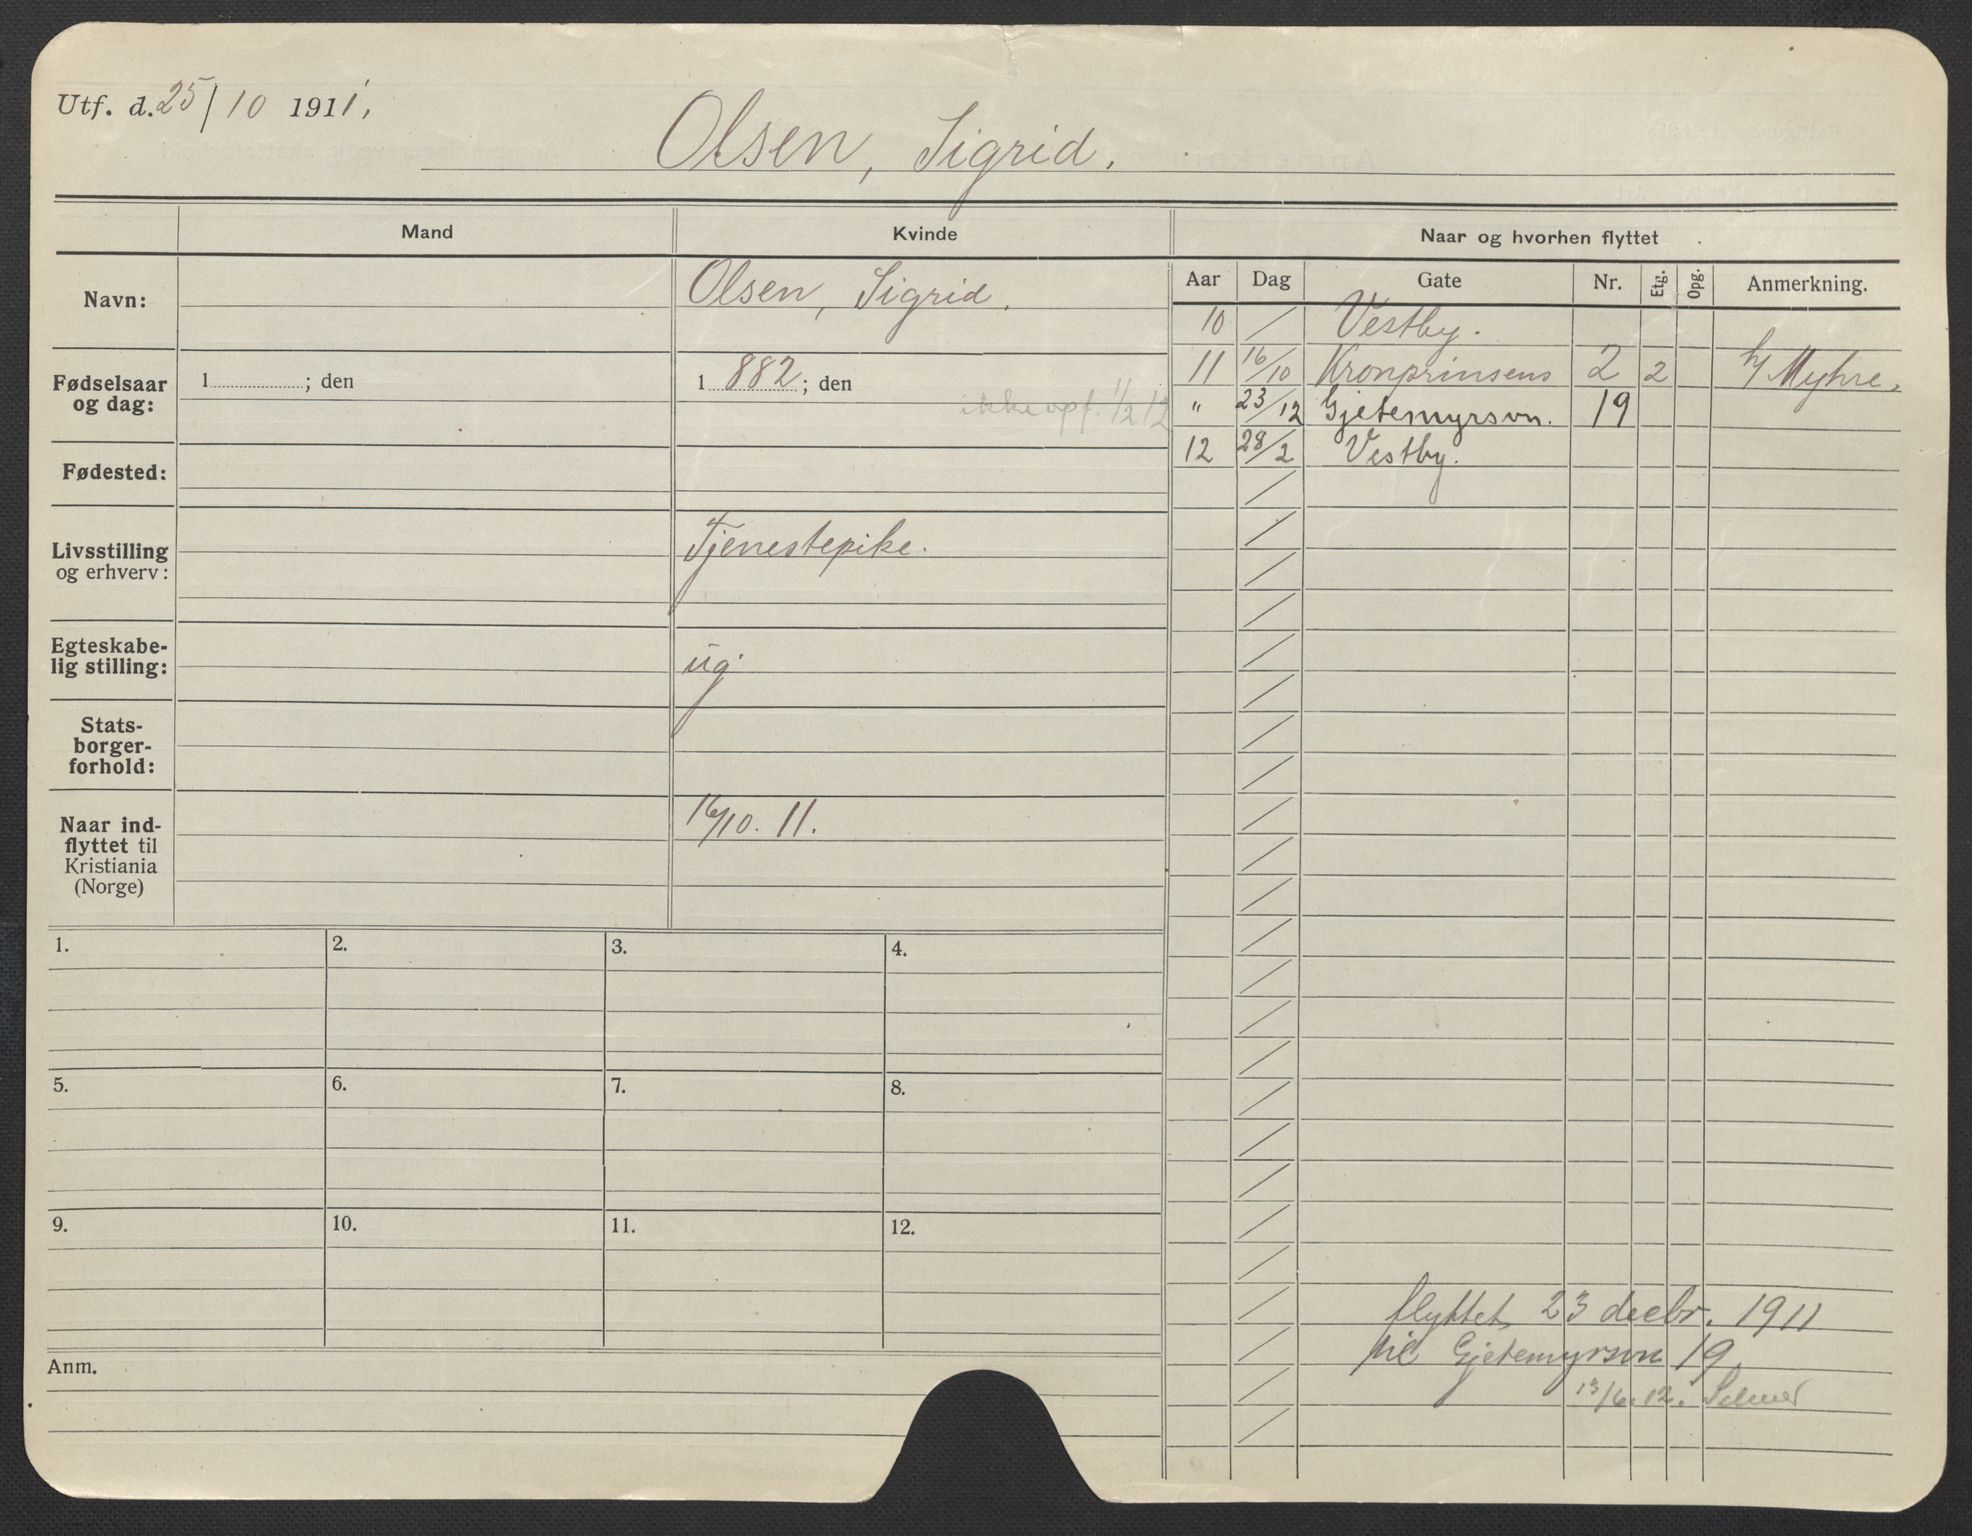 Utf. d. 25/10 1911.
Olsen, Sigrid.
Mand
Kvinde
Naar og hvorhen flyttet
Aar Dag Gate Nr. Etg. Opg. Anmerkning.
Navn:
Olsen, Sigrid.
Fødselsaar
og dag:
1 ; den
1 882 ; den
ikke opf. 1/2 12
Fødested:
Livsstilling
og erhverv:
Tjenestepike.
Egteskabe-
lig stilling:
ug.
Stats-
borger-
forhold:
Naar ind-
flyttet til
Kristiania
(Norge)
16/10. 11.
10 / Vestby.
11 16/10 Kronprinsens 2 2 h/ Myhre.
" 23/12 Gjetemyrsvn. 19
12 28/2 Vestby.
1. 2. 3. 4.
5. 6. 7. 8.
9. 10. 11. 12.
Anm.
flyttet 23 decbr. 1911
til Gjetemyrsvn 19
13/6.12.